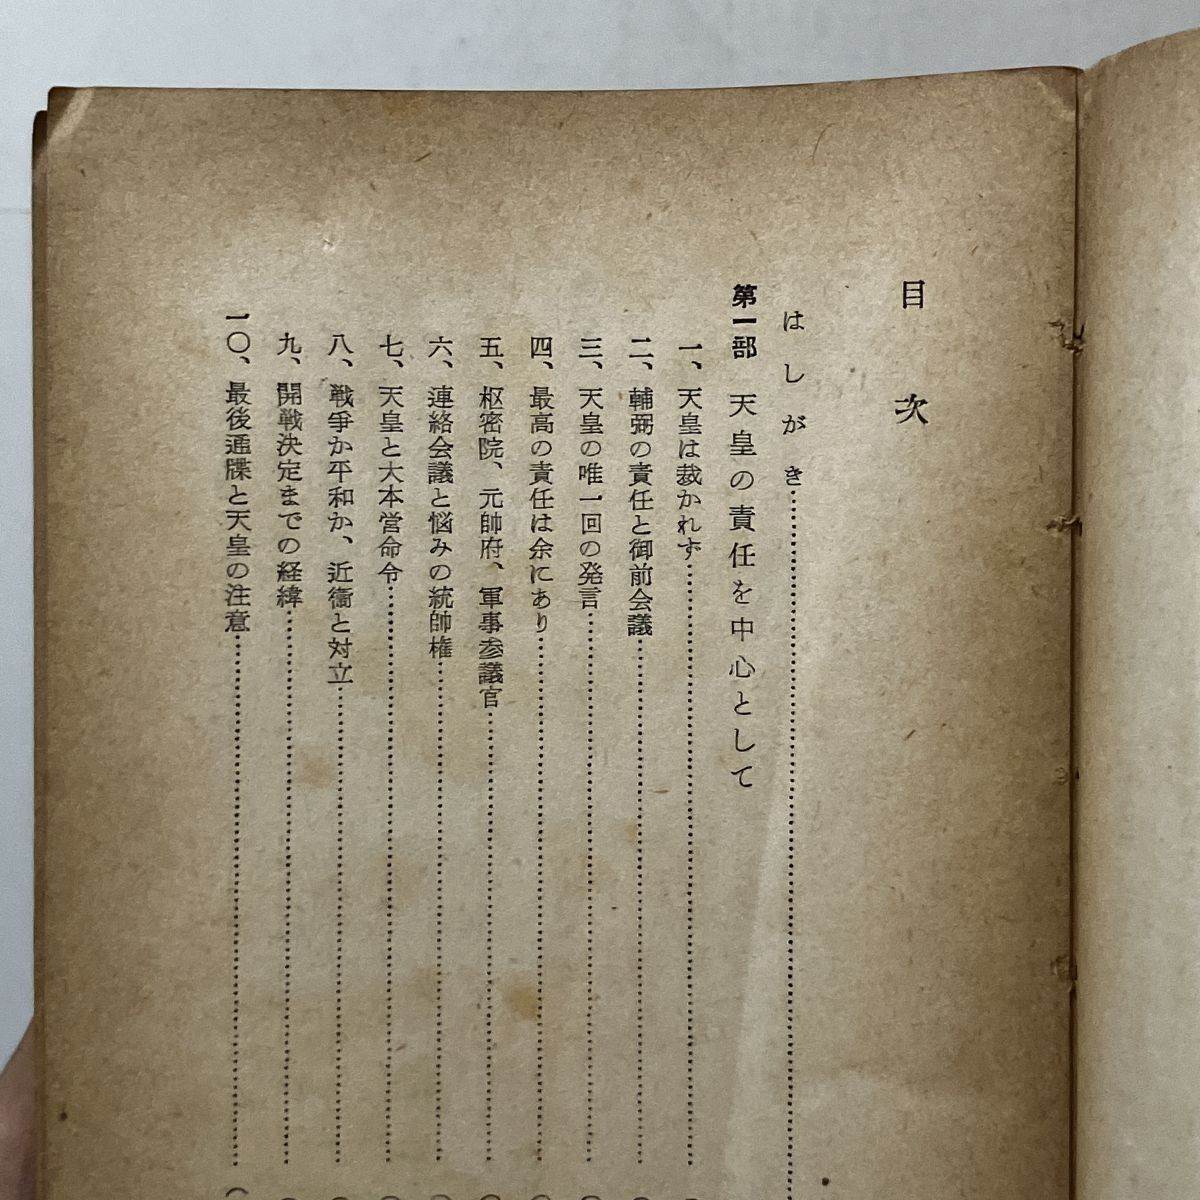 目次
はしがき
第一部 天皇の責任を中心として
一、天皇は裁かれず
二、輔弼の責任と御前会議
三、天皇の唯一回の発言
四、最高の責任は余にあり
五、枢密院、元帥府、軍事参議官
六、連絡会議と悩みの統帥権
七、天皇と大本営命令
八、戦爭か平和か、近衞と対立
九、開戦決定までの経緯
一〇、最後通牒と天皇の注意